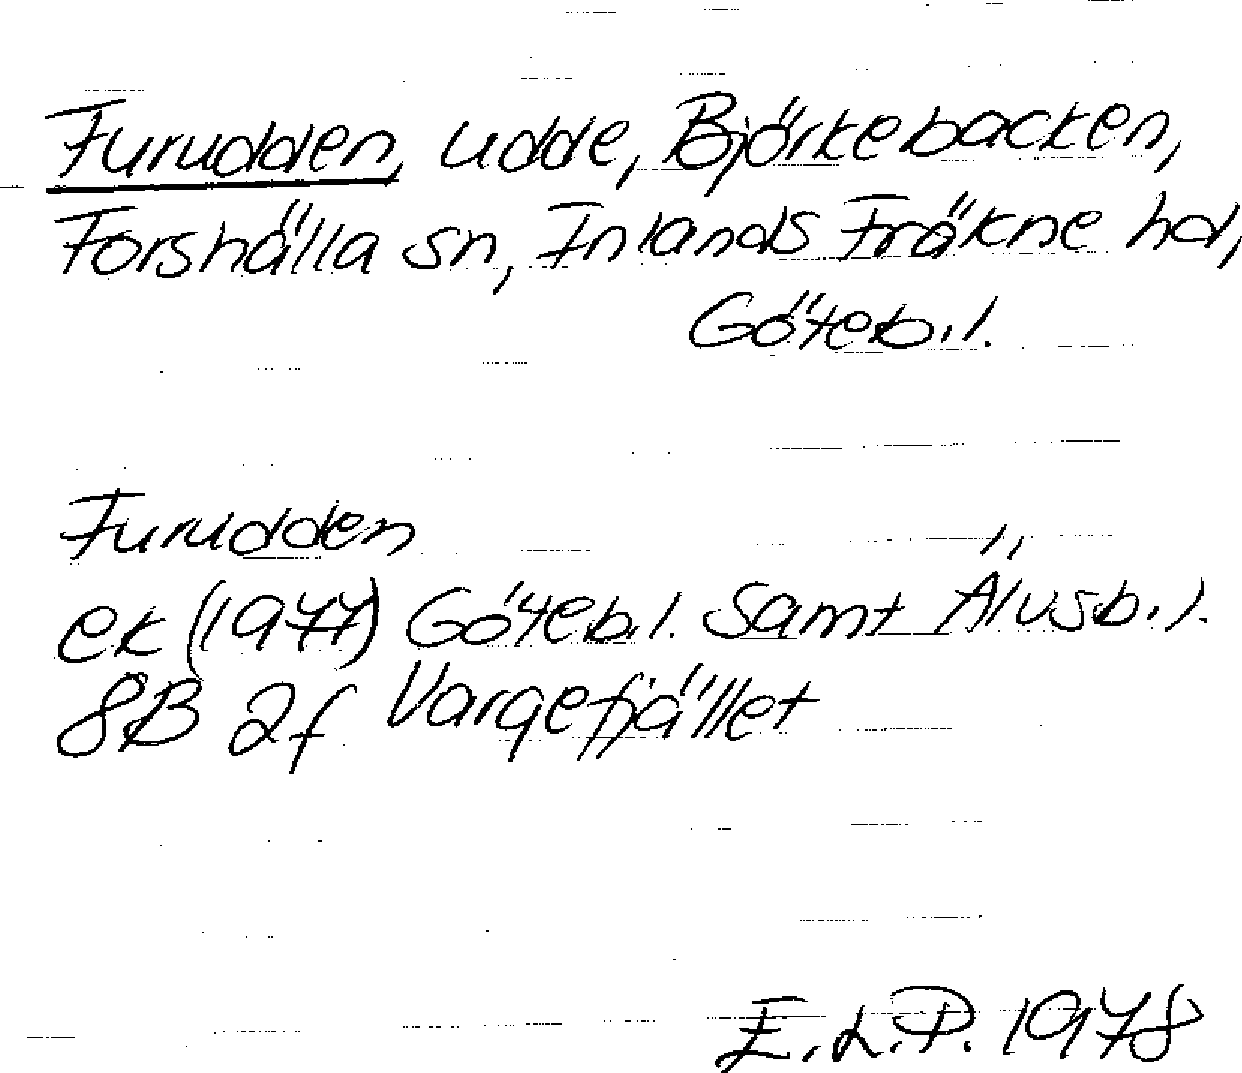 Furudden, udde, Björkebacken,
Forshälla sn, Inlands Fräkne hd,
Göteb.l.
Furudden
ek (1977) Göteb.l. samt Älvsb.l.
8B 2f Vargefjället
E.L.P. 1978